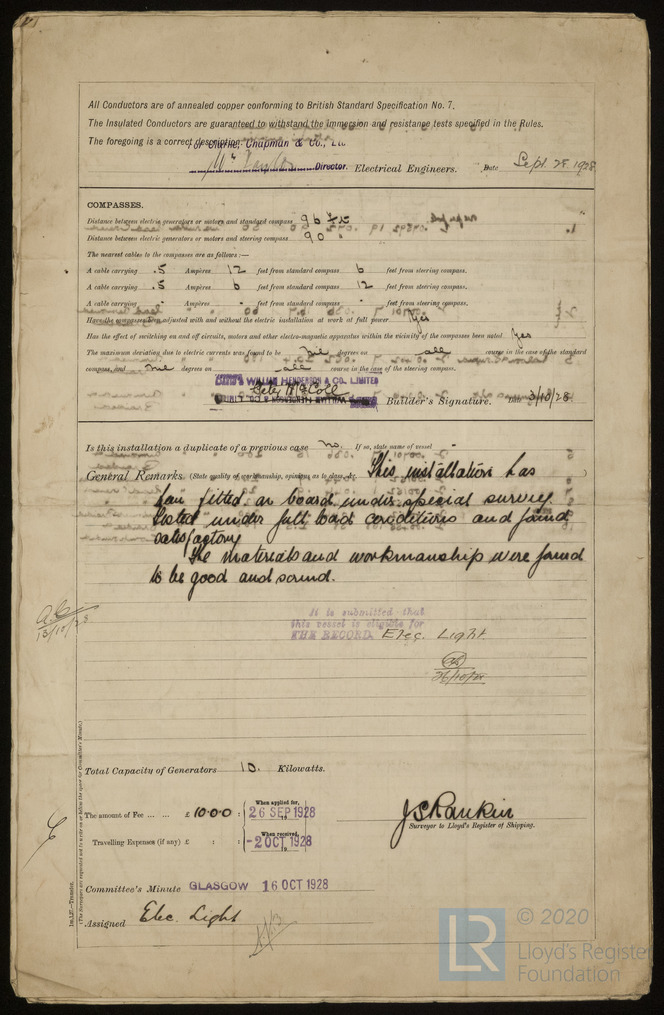 All Conductors are of annealed copper conforming to British Standard Specification No. 7.
The Insulated Conductors are guaranteed to withstand the immersion and resistance tests specified in the Rules.
The foregoing is a correct description.
For Clarke, Chapman & Co., Ltd
Director. Electrical Engineers. Date Sept. 28. 1928
COMPASSES.
Distance between electric generators or motors and standard compass 96
Distance between electric generators or motors and steering compass 90
The nearest cables to the compasses are as follows :—
A cable carrying .5 Ampères 12 feet from standard compass 6 feet from steering compass.
A cable carrying .5 Ampères 6 feet from standard compass 12 feet from steering compass.
A cable carrying - Ampères - feet from standard compass - feet from steering compass.
Have the compasses been adjusted with and without the electric installation at work at full power Yes
Has the effect of switching on and off circuits, motors and other electro-magnetic apparatus within the vicinity of the compasses been noted Yes
The maximum deviation due to electric currents was found to be nil degrees on all course in the case of the standard
compass, and nil degrees on all course in the case of the steering compass.
WILLIAM HENDERSON & CO., LIMITED
Builder's Signature. Date 3/10/28
Is this installation a duplicate of a previous case no. If so, state name of vessel -
General Remarks. (State quality of workmanship, opinions as to class, &c. This installation has
been fitted on board under special survey
tested under full load conditions and found
satisfactory
The materials and workmanship were found
to be good and sound.
13/10/28
It is submitted that
this vessel is eligible for
THE RECORD. Elec. Light
Total Capacity of Generators 10. Kilowatts.
The amount of Fee ... ... £ 10:0:0 :
When applied for,
26 SEP 1928
Travelling Expenses (if any) £ : :
When received,
-2 OCT 1928
J S Rankin
Surveyor to Lloyd's Register of Shipping.
Committee's Minute GLASGOW 16 OCT 1928
Assigned Elec. Light
© 2020
LR
Lloyd's Register
Foundation